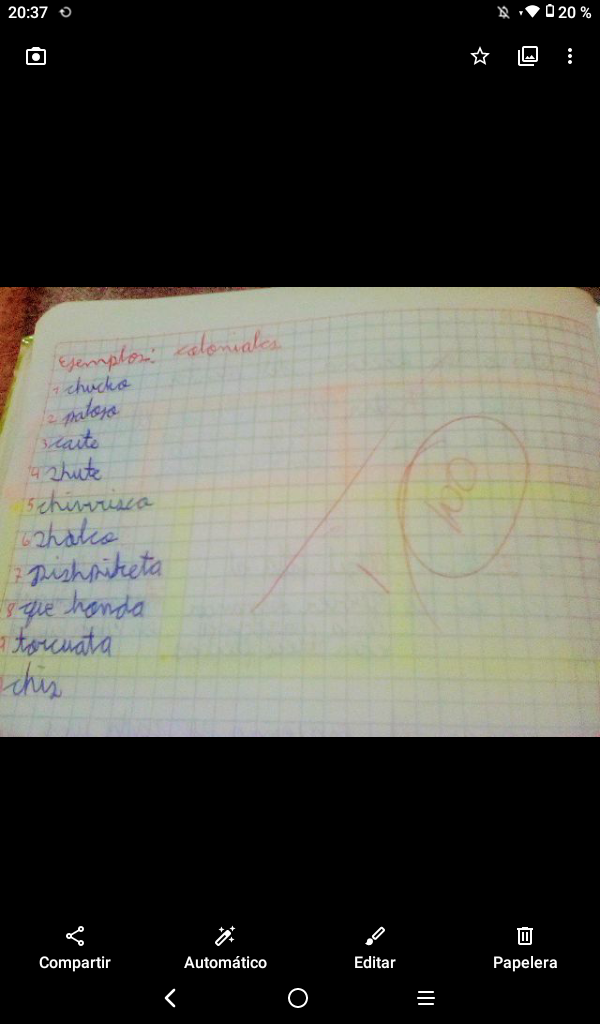 20:37
20 %
Ejemplos: coloniales
1 chucho
2 patojo
3 caite
4 shute
5 chirrisco
6 shalco
7 pishpireta
8 que honda
9 torcuata
chis
100
Compartir Automático Editar Papelera